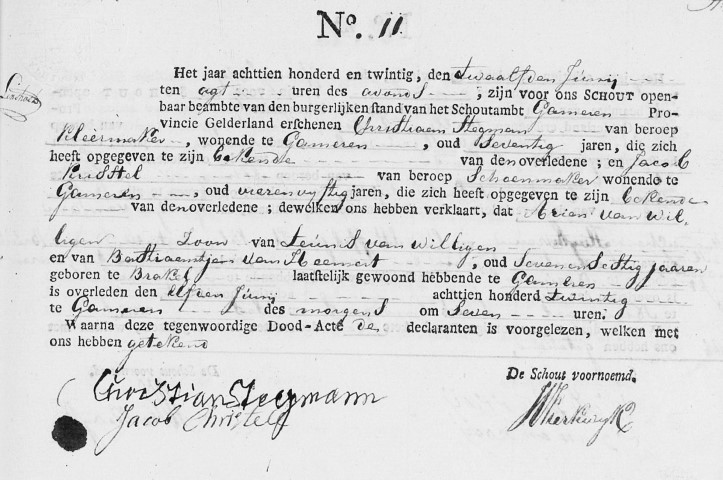 No. 11
Het jaar achttien honderd en twintig, den twaalfden Junij
ten agt uren des avonds, zijn voor ons SCHOUT open-
baar beambte van den burgerlijken stand van het Schoutambt Gameren Pro-
vincie Gelderland erschenen Christiaan Stegman van beroep
Kleermaker, wonende te Gameren, oud Seventig jaren, die zich
heeft opgegeven te zijn bekende van den overledene; en Jacob
Kristel van beroep Schoenmaker wonende te
Gameren, oud vierenvyftig jaren, die zich heeft opgegeven te zijn bekende
van den overledene; dewelken ons hebben verklaart, dat Arien van Wil-
ligen Zoon van Teunis van Willigen
en van Bastiaentjen van Heemert, oud Sevenensestig jaaren
geboren te Brakel laatstelijk gewoond hebbende te Gameren
is overleden den Elfden Junij achttien honderd twintig
te Gameren des morgens om Seven uren.
Waarna deze tegenwoordige Dood-Acte de declaranten is voorgelezen, welken met
ons hebben getekend
De Schout voornoemd.
Christian Stegmann
Jacob Christell